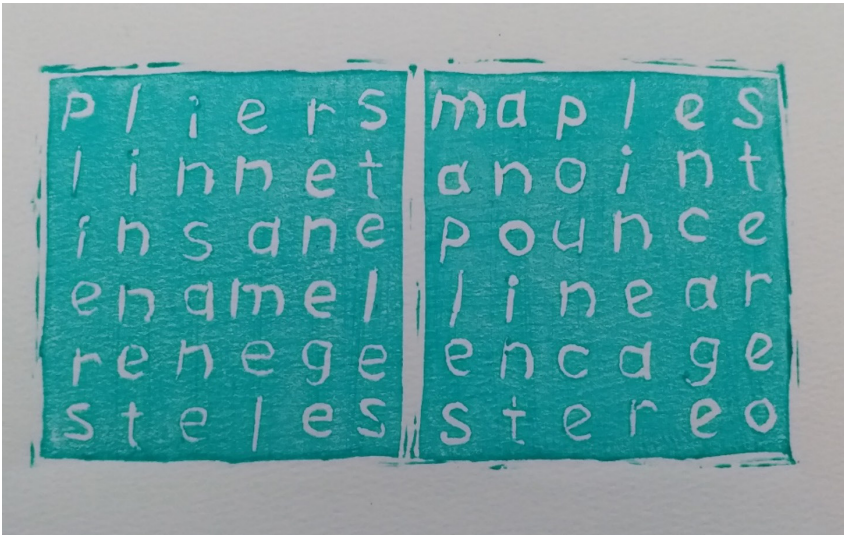 pliers
linnet
insane
enamel
renege
steles
maples
anoint
pounce
linear
encage
stereo